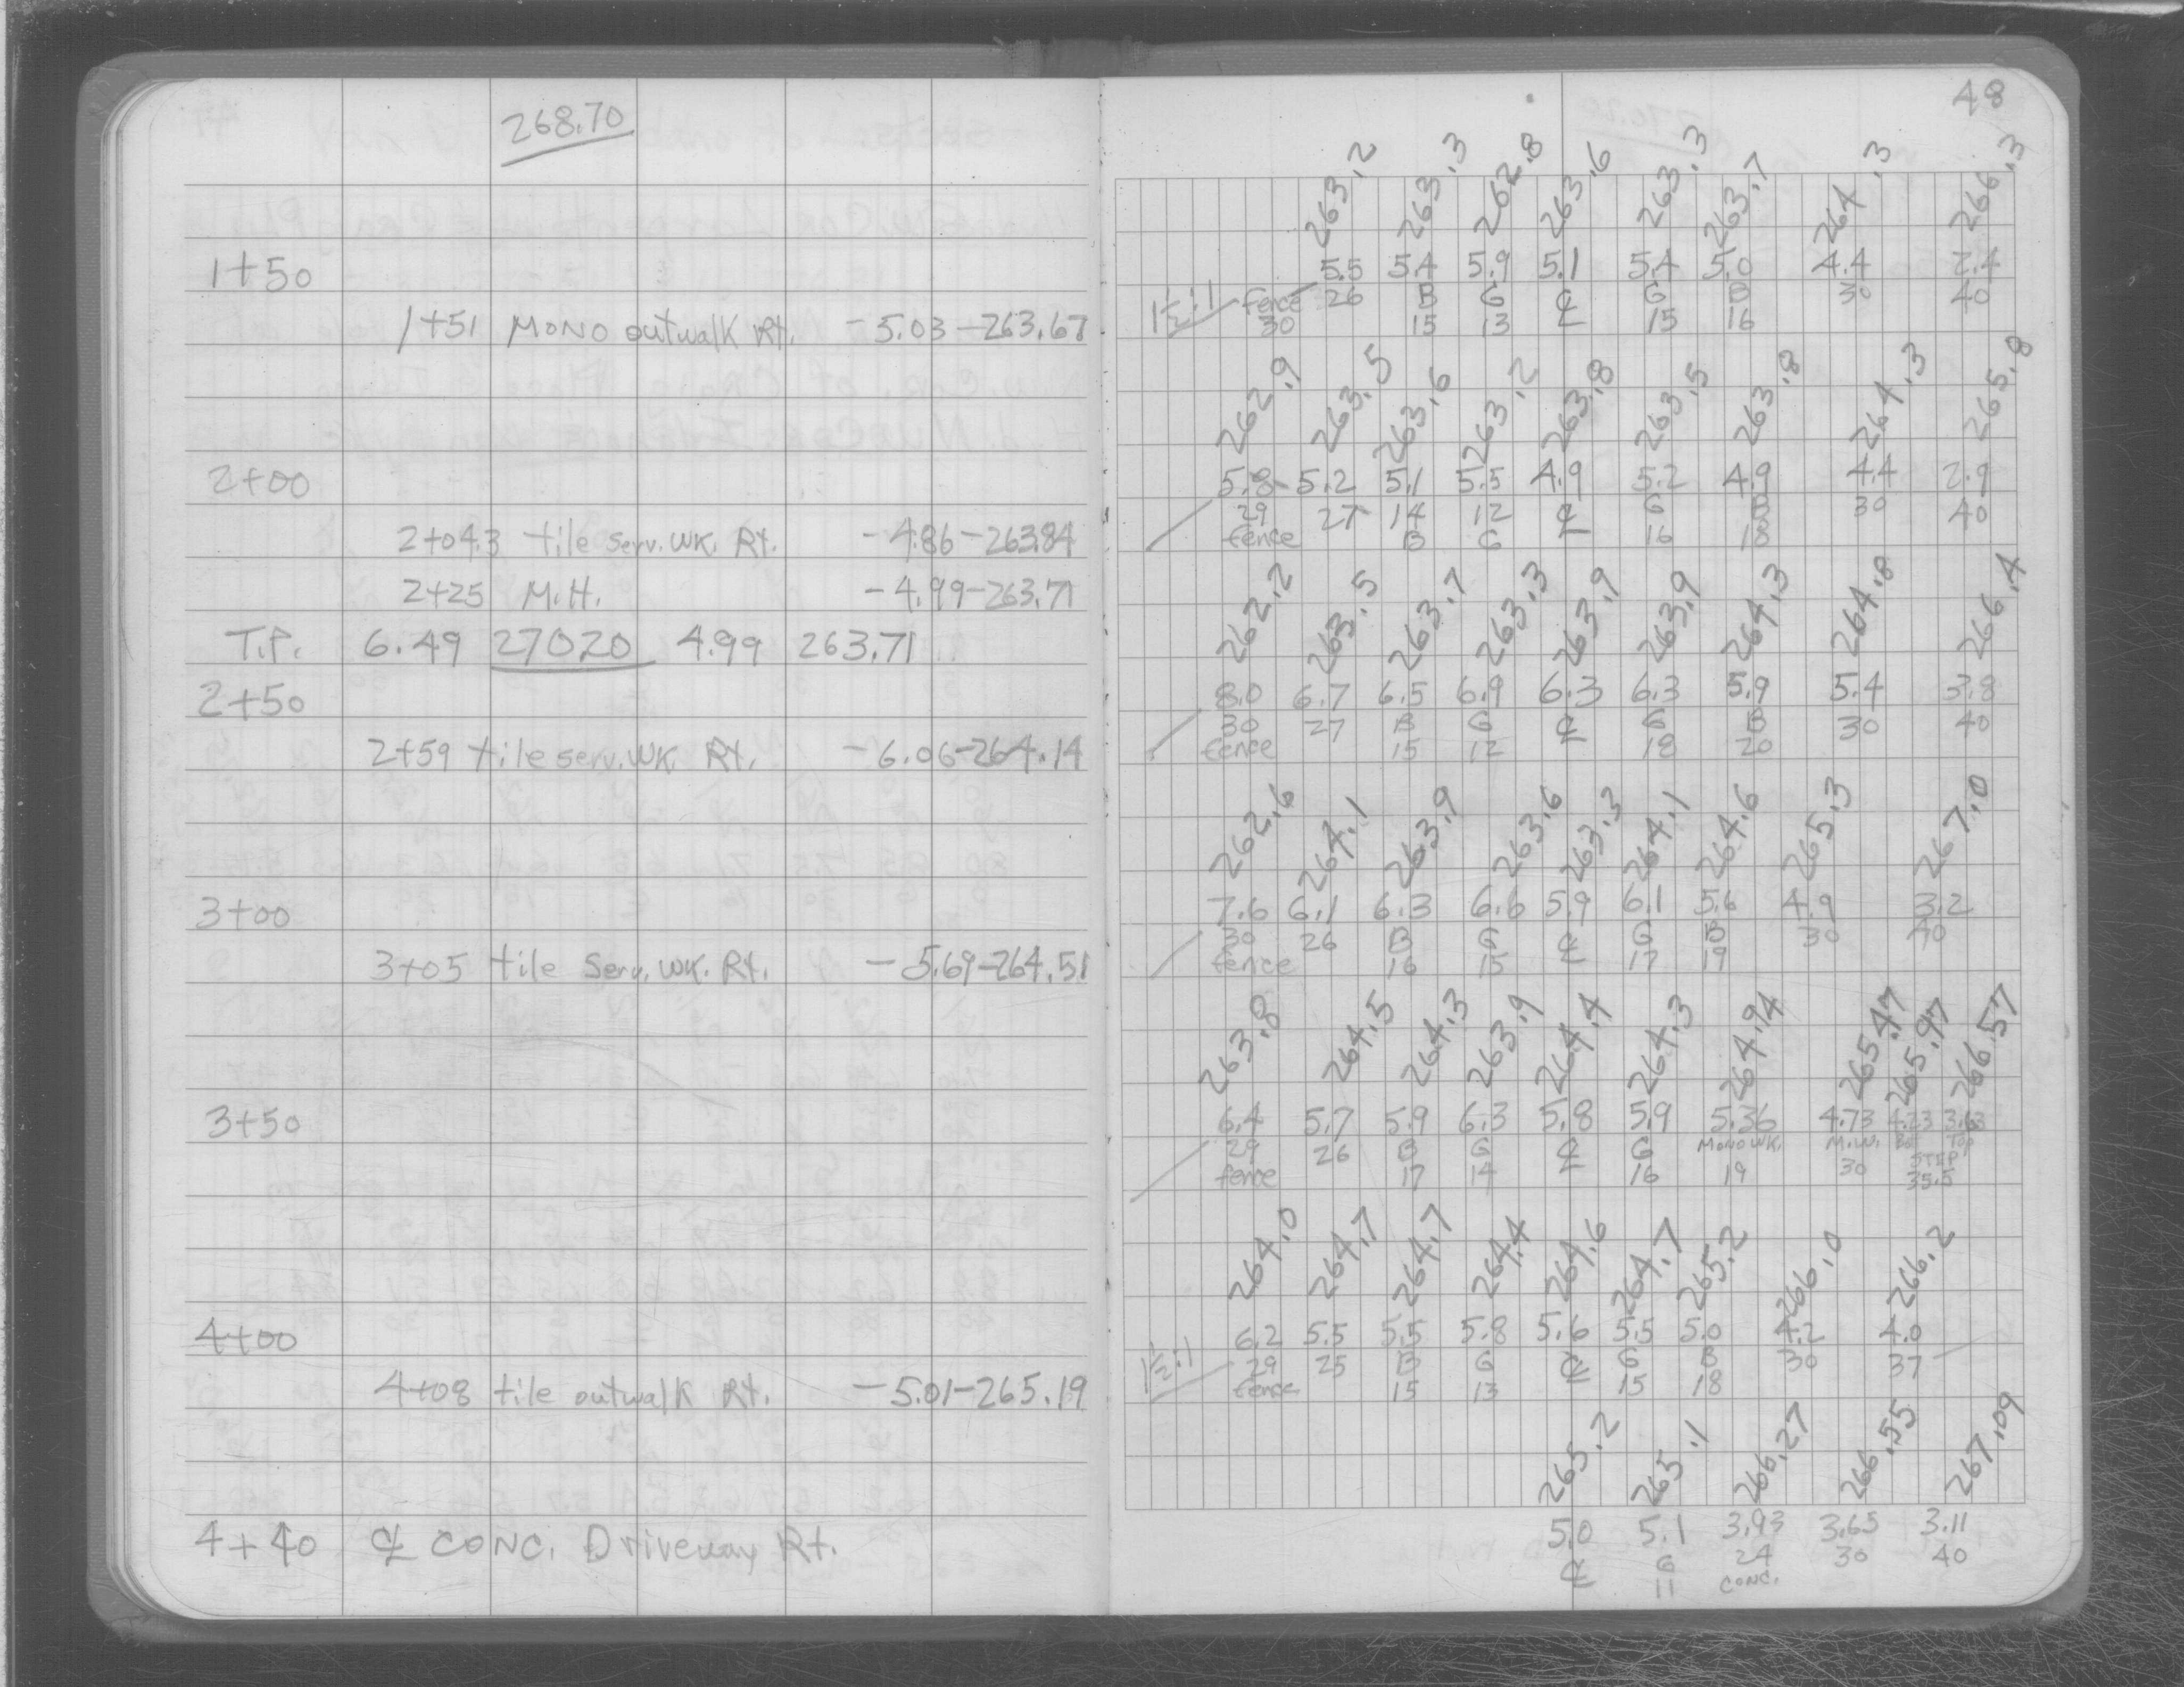 268.70
1+50
1+51 MONO outwalk Rt. -5.03-263.67
2+00
2+04.3 tile serv. WK. Rt. -4.86-263.84
2+25 M.H. -4.99-263.71
T.P. 6.49 270.20 4.99 263.71
2+50
2+59 tile serv. WK. Rt. -6.06-264.14
3+00
3+05 tile Serv. WK. Rt. -5.69-264.51
3+50
4+00
4+08 tile outwalk Rt. -5.01-265.19
4+40 ℄ CONC. Driveway Rt.
48
263.2 263.3 262.8 263.6 263.3 263.7 264.3 266.3
5.5 5.4 5.9 5.1 5.4 5.0 4.4 2.4
1½:1 fence 26 B G ℄ G B 30 40
30 15 13 15 16
262.9 263.5 263.6 263.2 263.8 263.5 263.8 264.3 265.8
5.8 5.2 5.1 5.5 4.9 5.2 4.9 4.4 2.9
29 27 14 12 ℄ G B 30 40
fence B G 16 18
262.2 263.5 263.7 263.3 263.9 263.9 264.3 264.8 266.4
8.0 6.7 6.5 6.9 6.3 6.3 5.9 5.4 3.8
30 27 B G ℄ G B 30 40
fence 15 12 18 20
262.6 264.1 263.9 263.6 263.3 264.1 264.6 265.3 267.0
7.6 6.1 6.3 6.6 5.9 6.1 5.6 4.9 3.2
30 26 B G ℄ G B 30 40
fence 16 15 17 19
263.8 264.5 264.3 263.9 264.4 264.3 264.94 265.47 265.97 266.57
6.4 5.7 5.9 6.3 5.8 5.9 5.36 4.73 4.23 3.63
29 26 B G ℄ G MONO WK. M.W. Bot Top
fence 17 14 16 19 30 STEP
35.5
264.0 264.7 264.7 264.4 264.6 264.7 265.2 266.0 266.2
6.2 5.5 5.5 5.8 5.6 5.5 5.0 4.2 4.0
1½:1 29 25 B G ℄ G B 30 37
fence 15 13 15 18
265.2 265.1 266.27 266.55 267.09
5.0 5.1 3.93 3.65 3.11
℄ G 24 30 40
11 CONC.